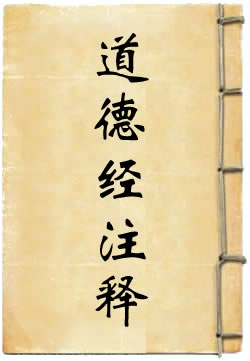 道德经注释